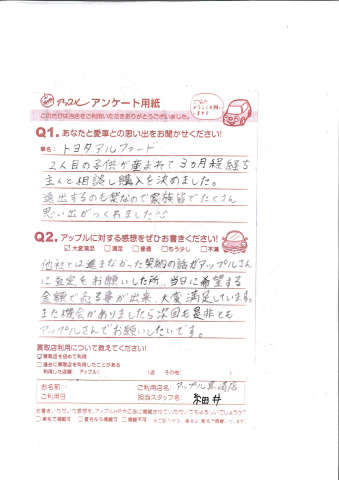 アップル アンケート用紙
ご協力
よろしくお願い
します
この度は当店をご利用いただきありがとうございました。
Q1. あなたと愛車との思い出をお聞かせください!
車名: トヨタアルファード
2人目の子供が産まれて3ヵ月程経ち
主人と相談し購入を決めました。
遠出するのも楽なので家族皆でたくさん
思い出がつくれました
Q2. アップルに対する感想をぜひお書きください!
☑大変満足 □満足 □普通 □もう少し □不満
他社では進まなかった契約の話がアップルさん
に査定をお願いした所、当日に希望する
金額で売る事が出来、大変満足しています。
また機会がありましたら次回も是非とも
アップルさんでお願いしたいです。
買取店利用について教えてください!
☑買取店を初めて利用
□過去に買取店を利用したことがある
利用した店舗: アップル( )店 その他( )
お名前: ご利用店名: アップル 店
ご利用日 担当スタッフ名: 糸田井
お書きいただいた感想を、アップルHPや広告に掲載させていただいてもよろしいでしょうか?
□実名で掲載可 □匿名なら掲載可 □掲載不可